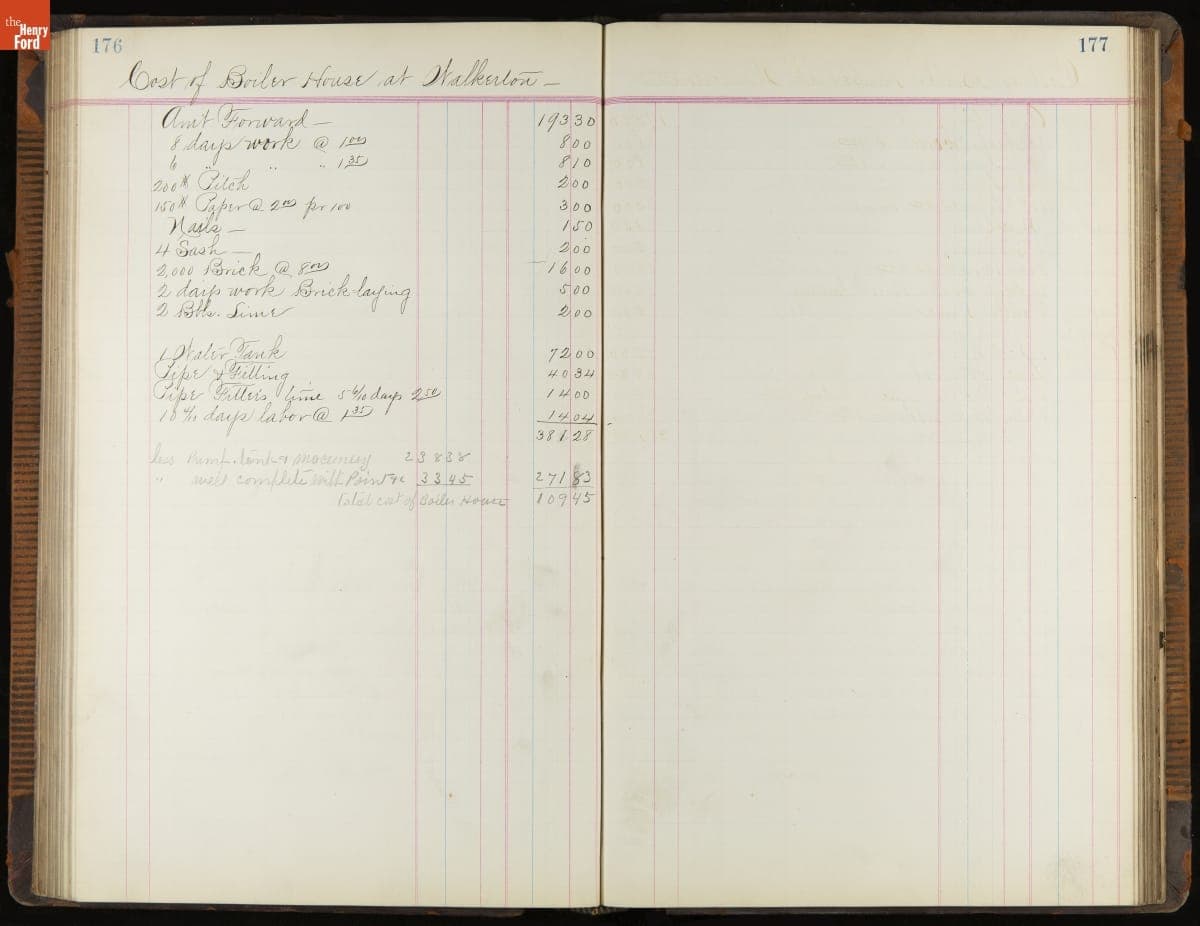 the
Henry
Ford
176
177
Cost of Boiler House at Walkerton —
Amt Forward — 193 30
8 days work @ 1 00 8 00
6 " " " 1 35 8 10
200 # Pitch 2 00
150 # Paper @ 2 00 pr 100 3 00
Nails — 1 50
4 Sash — 2 00
2,000 Brick @ 8 00 16 00
2 days work Brick-laying 5 00
2 Bbls. Lime 2 00
1 Water Tank 72 00
Pipe & Fitting 40 34
Pipe Fitters time 5 6/10 days 2 50 14 00
10 4/10 days labor @ 1 35 14 04
381 28
less Pump tank & machinery 238 38
" well complete with Point &c 33 45 271 83
Total cost of Boiler House 109 45